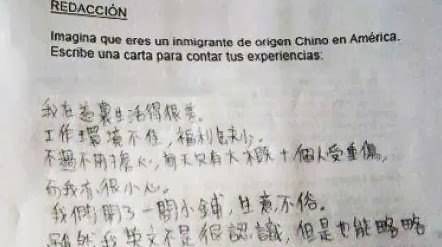 REDACCIÓN
Imagina que eres un inmigrante de origen Chino en América.
Escribe una carta para contar tus experiencias:
我在這裏生活得很差。
工作環境不佳，福利也缺少。
不過不用擔心，每天只有大概十個人受重傷，
而我有很小心。
我們開了一間小鋪，生意不俗。
雖然我英文不是很認識，但是也能略略